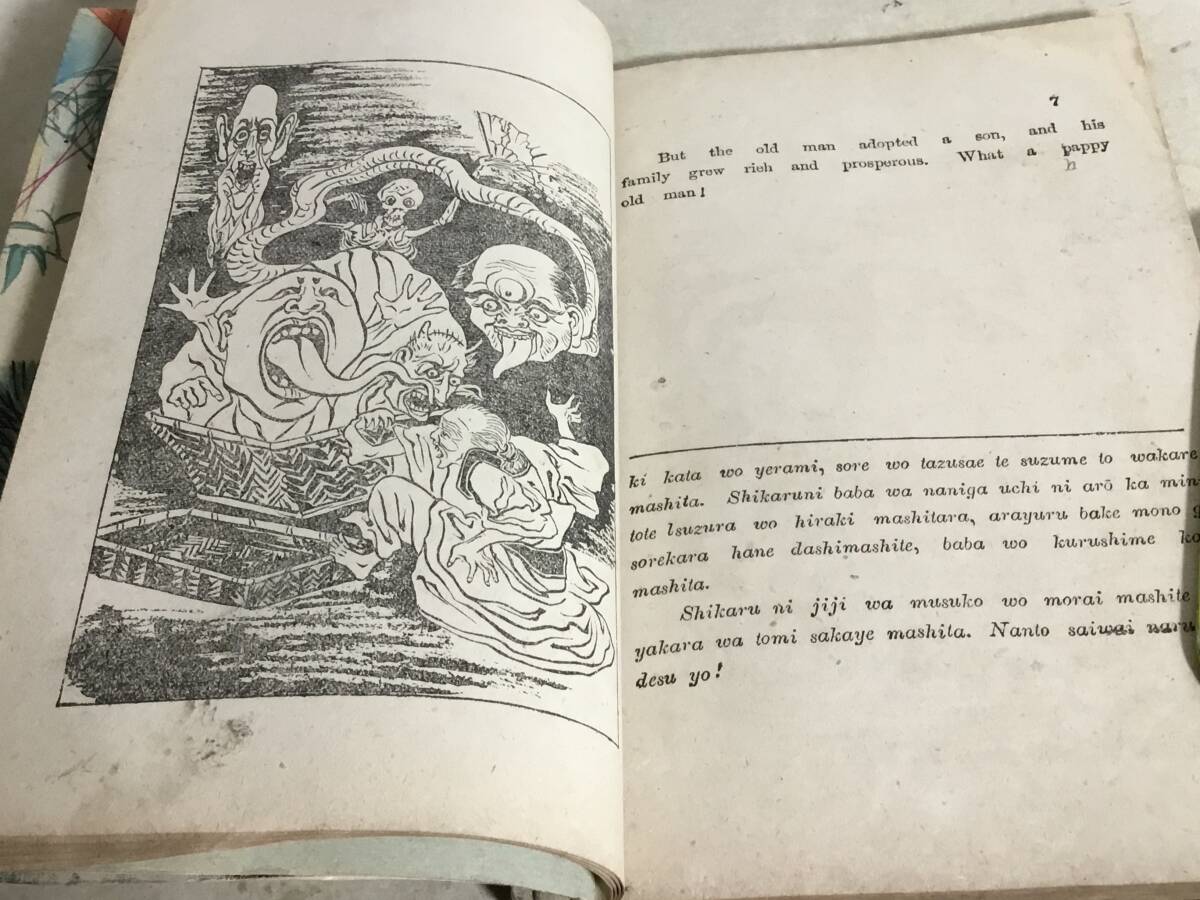 7
But the old man adopted a son, and his
family grew rich and prosperous. What a pappy
h
old man!
ki kata wo yerami, sore wo tazusae te suzume to wakare
mashita. Shikaruni baba wa naniga uchi ni arō ka min-
tote lsuzura wo hiraki mashitara, arayuru bake mono g
sorekara hane dashimashite, baba wo kurushime ko
mashita.
Shikaru ni jiji wa musuko wo morai mashite
yakara wa tomi sakaye mashita. Nanto saiwai naru
desu yo!